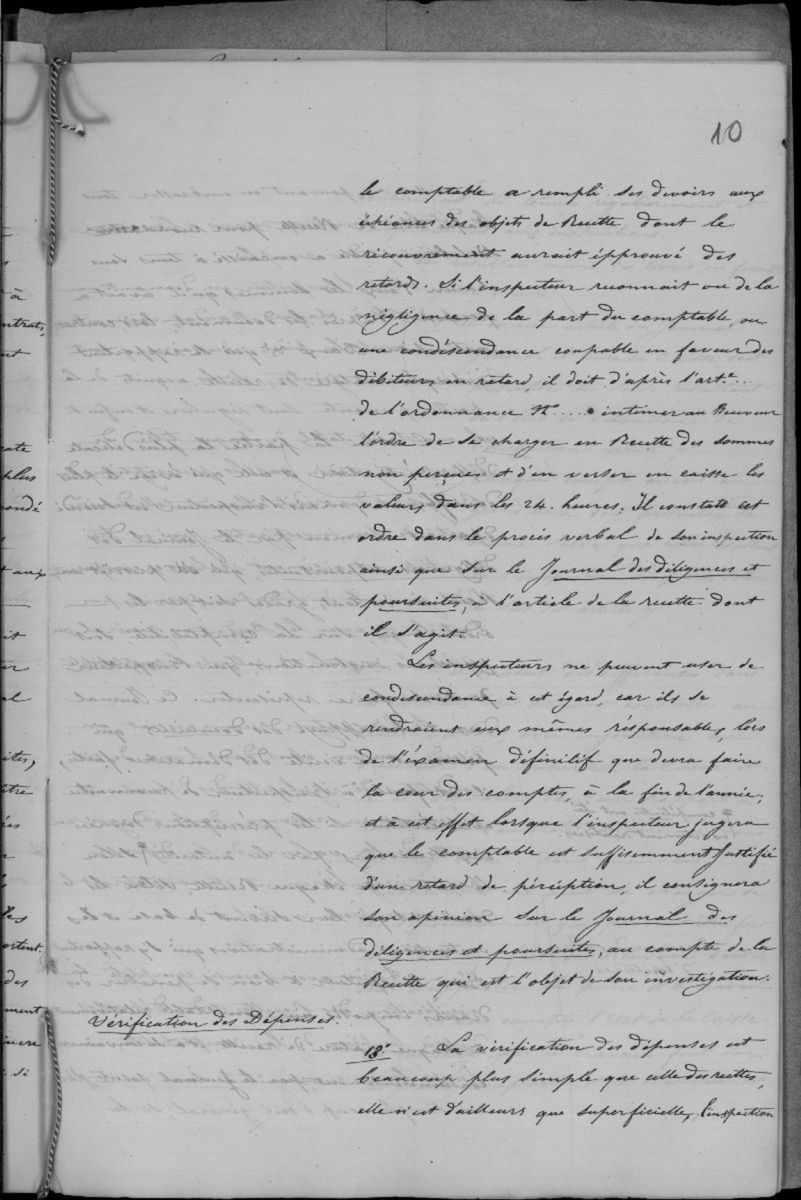 10
le comptable a rempli ses devoirs aux
échéances des objets de Recette dont le
récouvrement aurait éprouvé des
retards. Si l'inspecteur reconnait ou de la
négligence de la part du comptable, ou
une condéscendance coupable en faveur des
débiteurs en retard, il doit d'après l'art.e ...
de l'ordonnance No .... intimer au Receveur
l'ordre de se charger en Recette des sommes
non perçues et d'en verser en caisse les
valeurs dans les 24. heures. Il constate cet
ordre dans le procès verbal de son inspection
ainsi que sur le Journal des diligences et
poursuites, à l'article de la recette dont
il s'agit.
Les inspecteurs ne peuvent user de
condescendance à cet égard, car ils se
rendraient aux mêmes résponsables, lors
de l'éxamen définitif que devra faire
la cour des comptes, à la fin de l'année;
et à cet effet lorsque l'inspecteur jugera
que le comptable est suffisemment Justifié
d'un retard de pércéption, il consignera
son opinion sur le Journal des
diligences et poursuites, au compte de la
Recette qui est l'objet de son investigation.
Vérification des Dépenses.
13° La vérification des dépenses est
beaucoup plus simple que celle des recettes,
elle n'est d'ailleurs que superficielle, l'inspection